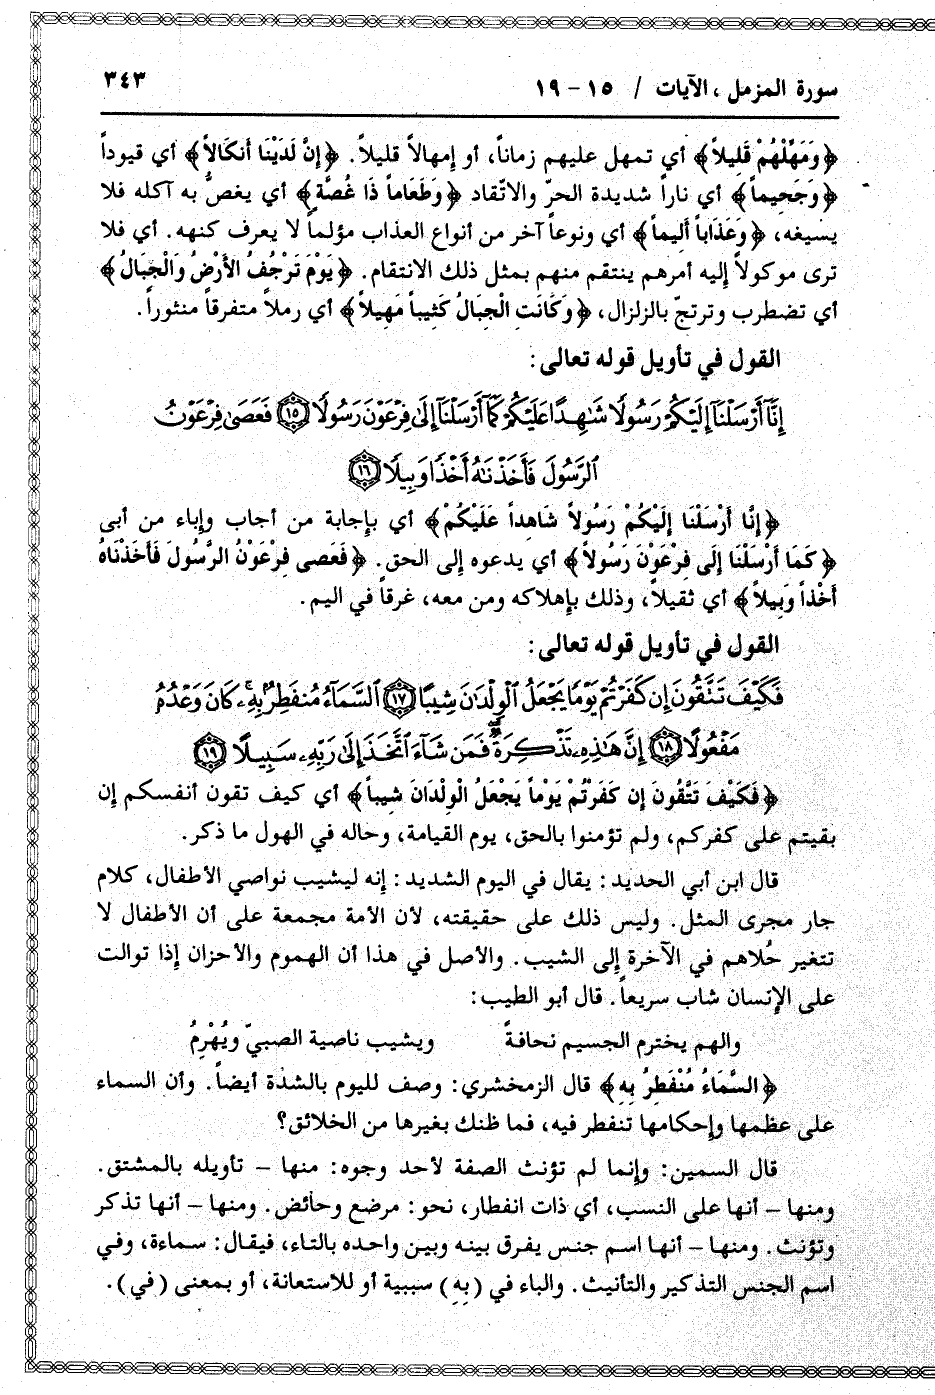 سورة المزمل ، الآيات / ١٥ – ١٩
٣٤٣
﴿وَمَهِّلْهُمْ قَلِيلاً﴾ أي تمهل عليهم زماناً، أو إمهالاً قليلاً. ﴿إِنَّ لَدَيْنَا أَنكَالاً﴾ أي قيوداً
﴿وَجَحِيماً﴾ أي ناراً شديدة الحرّ والاتّقاد ﴿وَطَعَاماً ذَا غُصَّةٍ﴾ أي يغصُّ به آكله فلا
يسيغه، ﴿وَعَذَاباً أَلِيماً﴾ أي ونوعاً آخر من أنواع العذاب مؤلماً لا يعرف كنهه. أي فلا
ترى موكولاً إليه أمرهم ينتقم منهم بمثل ذلك الانتقام. ﴿يَوْمَ تَرْجُفُ الأَرْضُ وَالْجِبَالُ﴾
أي تضطرب وترتجّ بالزلزال، ﴿وَكَانَتِ الْجِبَالُ كَثِيباً مَهِيلاً﴾ أي رملاً متفرقاً منثوراً.
القول في تأويل قوله تعالى:
إِنَّآ أَرْسَلْنَآ إِلَيْكُمْ رَسُولًا شَٰهِدًا عَلَيْكُمْ كَمَآ أَرْسَلْنَآ إِلَىٰ فِرْعَوْنَ رَسُولًا ﴿١٥﴾ فَعَصَىٰ فِرْعَوْنُ
ٱلرَّسُولَ فَأَخَذْنَٰهُ أَخْذًا وَبِيلًا ﴿١٦﴾
﴿إِنَّا أَرْسَلْنَا إِلَيْكُمْ رَسُولاً شَاهِداً عَلَيْكُمْ﴾ أي بإجابة من أجاب وإباء من أبى
﴿كَمَا أَرْسَلْنَا إِلَى فِرْعَوْنَ رَسُولاً﴾ أي يدعوه إلى الحق. ﴿فَعَصى فِرْعَوْنُ الرَّسُولَ فَأَخَذْنَاهُ
أَخْذاً وَبِيلاً﴾ أي ثقيلاً، وذلك بإهلاكه ومن معه، غرقاً في اليم.
القول في تأويل قوله تعالى:
فَكَيْفَ تَتَّقُونَ إِن كَفَرْتُمْ يَوْمًا يَجْعَلُ ٱلْوِلْدَٰنَ شِيبًا ﴿١٧﴾ ٱلسَّمَآءُ مُنفَطِرٌۢ بِهِۦ ۚ كَانَ وَعْدُهُۥ
مَفْعُولًا ﴿١٨﴾ إِنَّ هَٰذِهِۦ تَذْكِرَةٌ ۖ فَمَن شَآءَ ٱتَّخَذَ إِلَىٰ رَبِّهِۦ سَبِيلًا ﴿١٩﴾
﴿فَكَيْفَ تَتَّقُونَ إِن كَفَرْتُمْ يَوْماً يَجْعَلُ الْوِلْدَانَ شِيباً﴾ أي كيف تقون أنفسكم إن
بقيتم على كفركم، ولم تؤمنوا بالحق، يوم القيامة، وحاله في الهول ما ذكر.
قال ابن أبي الحديد: يقال في اليوم الشديد: إنه ليشيب نواصي الأطفال، كلام
جار مجرى المثل. وليس ذلك على حقيقته، لأن الأمة مجمعة على أن الأطفال لا
تتغير حُلاهم في الآخرة إلى الشيب. والأصل في هذا أن الهموم والأحزان إذا توالت
على الإنسان شاب سريعاً. قال أبو الطيب:
والهم يخترم الجسيم نحافةً ويشيب ناصية الصبيّ ويُهْرِمُ
﴿السَّمَاءُ مُنْفَطِرٌ بِهِ﴾ قال الزمخشري: وصف لليوم بالشدّة أيضاً. وأن السماء
على عظمها وإحكامها تنفطر فيه، فما ظنك بغيرها من الخلائق؟
قال السمين: وإنما لم تؤنث الصفة لأحد وجوه: منها – تأويله بالمشتق.
ومنها – أنها على النسب، أي ذات انفطار، نحو: مرضع وحائض. ومنها – أنها تذكر
وتؤنث. ومنها – أنها اسم جنس يفرق بينه وبين واحده بالتاء، فيقال: سماءة، وفي
اسم الجنس التذكير والتأنيث. والباء في (بِهِ) سببية أو للاستعانة، أو بمعنى (في).